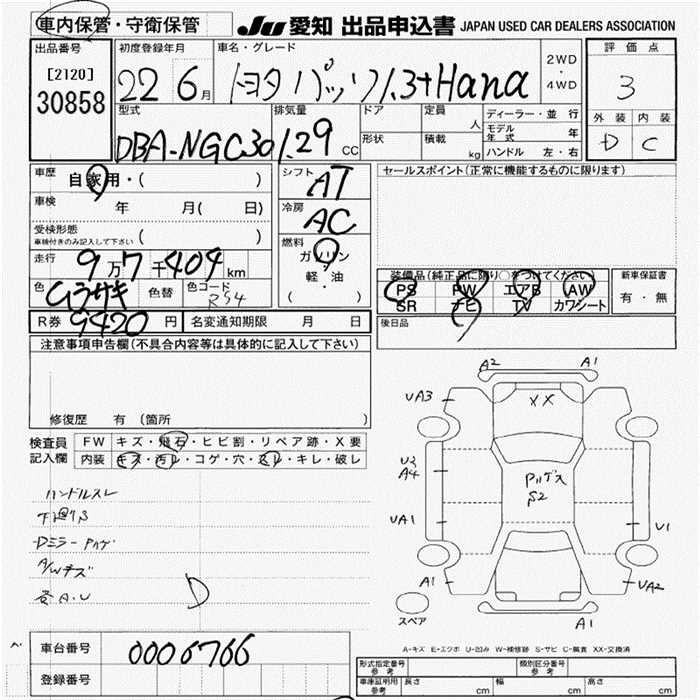 車内保管・守衛保管 JU 愛知 出品申込書 JAPAN USED CAR DEALERS ASSOCIATION
出品番号 初度登録年月 車名・グレード 評価点
[2120] 22 6月 トヨタ パッソ1.3+Hana 2WD・4WD 3
30858 型式 排気量 ドア 定員 人 ディーラー・並行 外装 内装
DBA-NGC30 1.29 CC 形状 積載 kg モデル年式 年 D C
ハンドル 左・右
車歴 自家用・( ) シフト AT セールスポイント(正常に機能するものに限ります)
車検 年 月( 日) 冷房 AC
受検形態
車検付きのみ記入して下さい ( )
走行 9万7千404km 燃料 ガソリン
軽・油
( )
色 色替 色コード
R券 9420円 名変通知期限 月 日
装備品(純正品に限り○をつけてください) 新車保証書
PS PW エアB AW 有・無
SR ナビ TV カワシート
後日品
注意事項申告欄(不具合内容等は具体的に記入して下さい)
修復歴 有(箇所 )
検査員 FW キズ・飛石・ヒビ割・リペア跡・X要
記入欄 内装 キズ・汚レ・コゲ・穴・スレ・キレ・破レ
ハンドルスレ
Dミラー
A/Wキズ
各A.U
D
A2 A1
UA3 XX
U2
A4
S2
UA1 U1
A1 UA2
スペア A1
A-キズ E-エクボ U-凹み W-補修跡 S-サビ C-腐食 XX-交換済
車台番号 0006766
登録番号
形式指定番号 参考 類別区分番号 参考
車庫証明用 参考 長さ cm 幅 cm 高さ cm